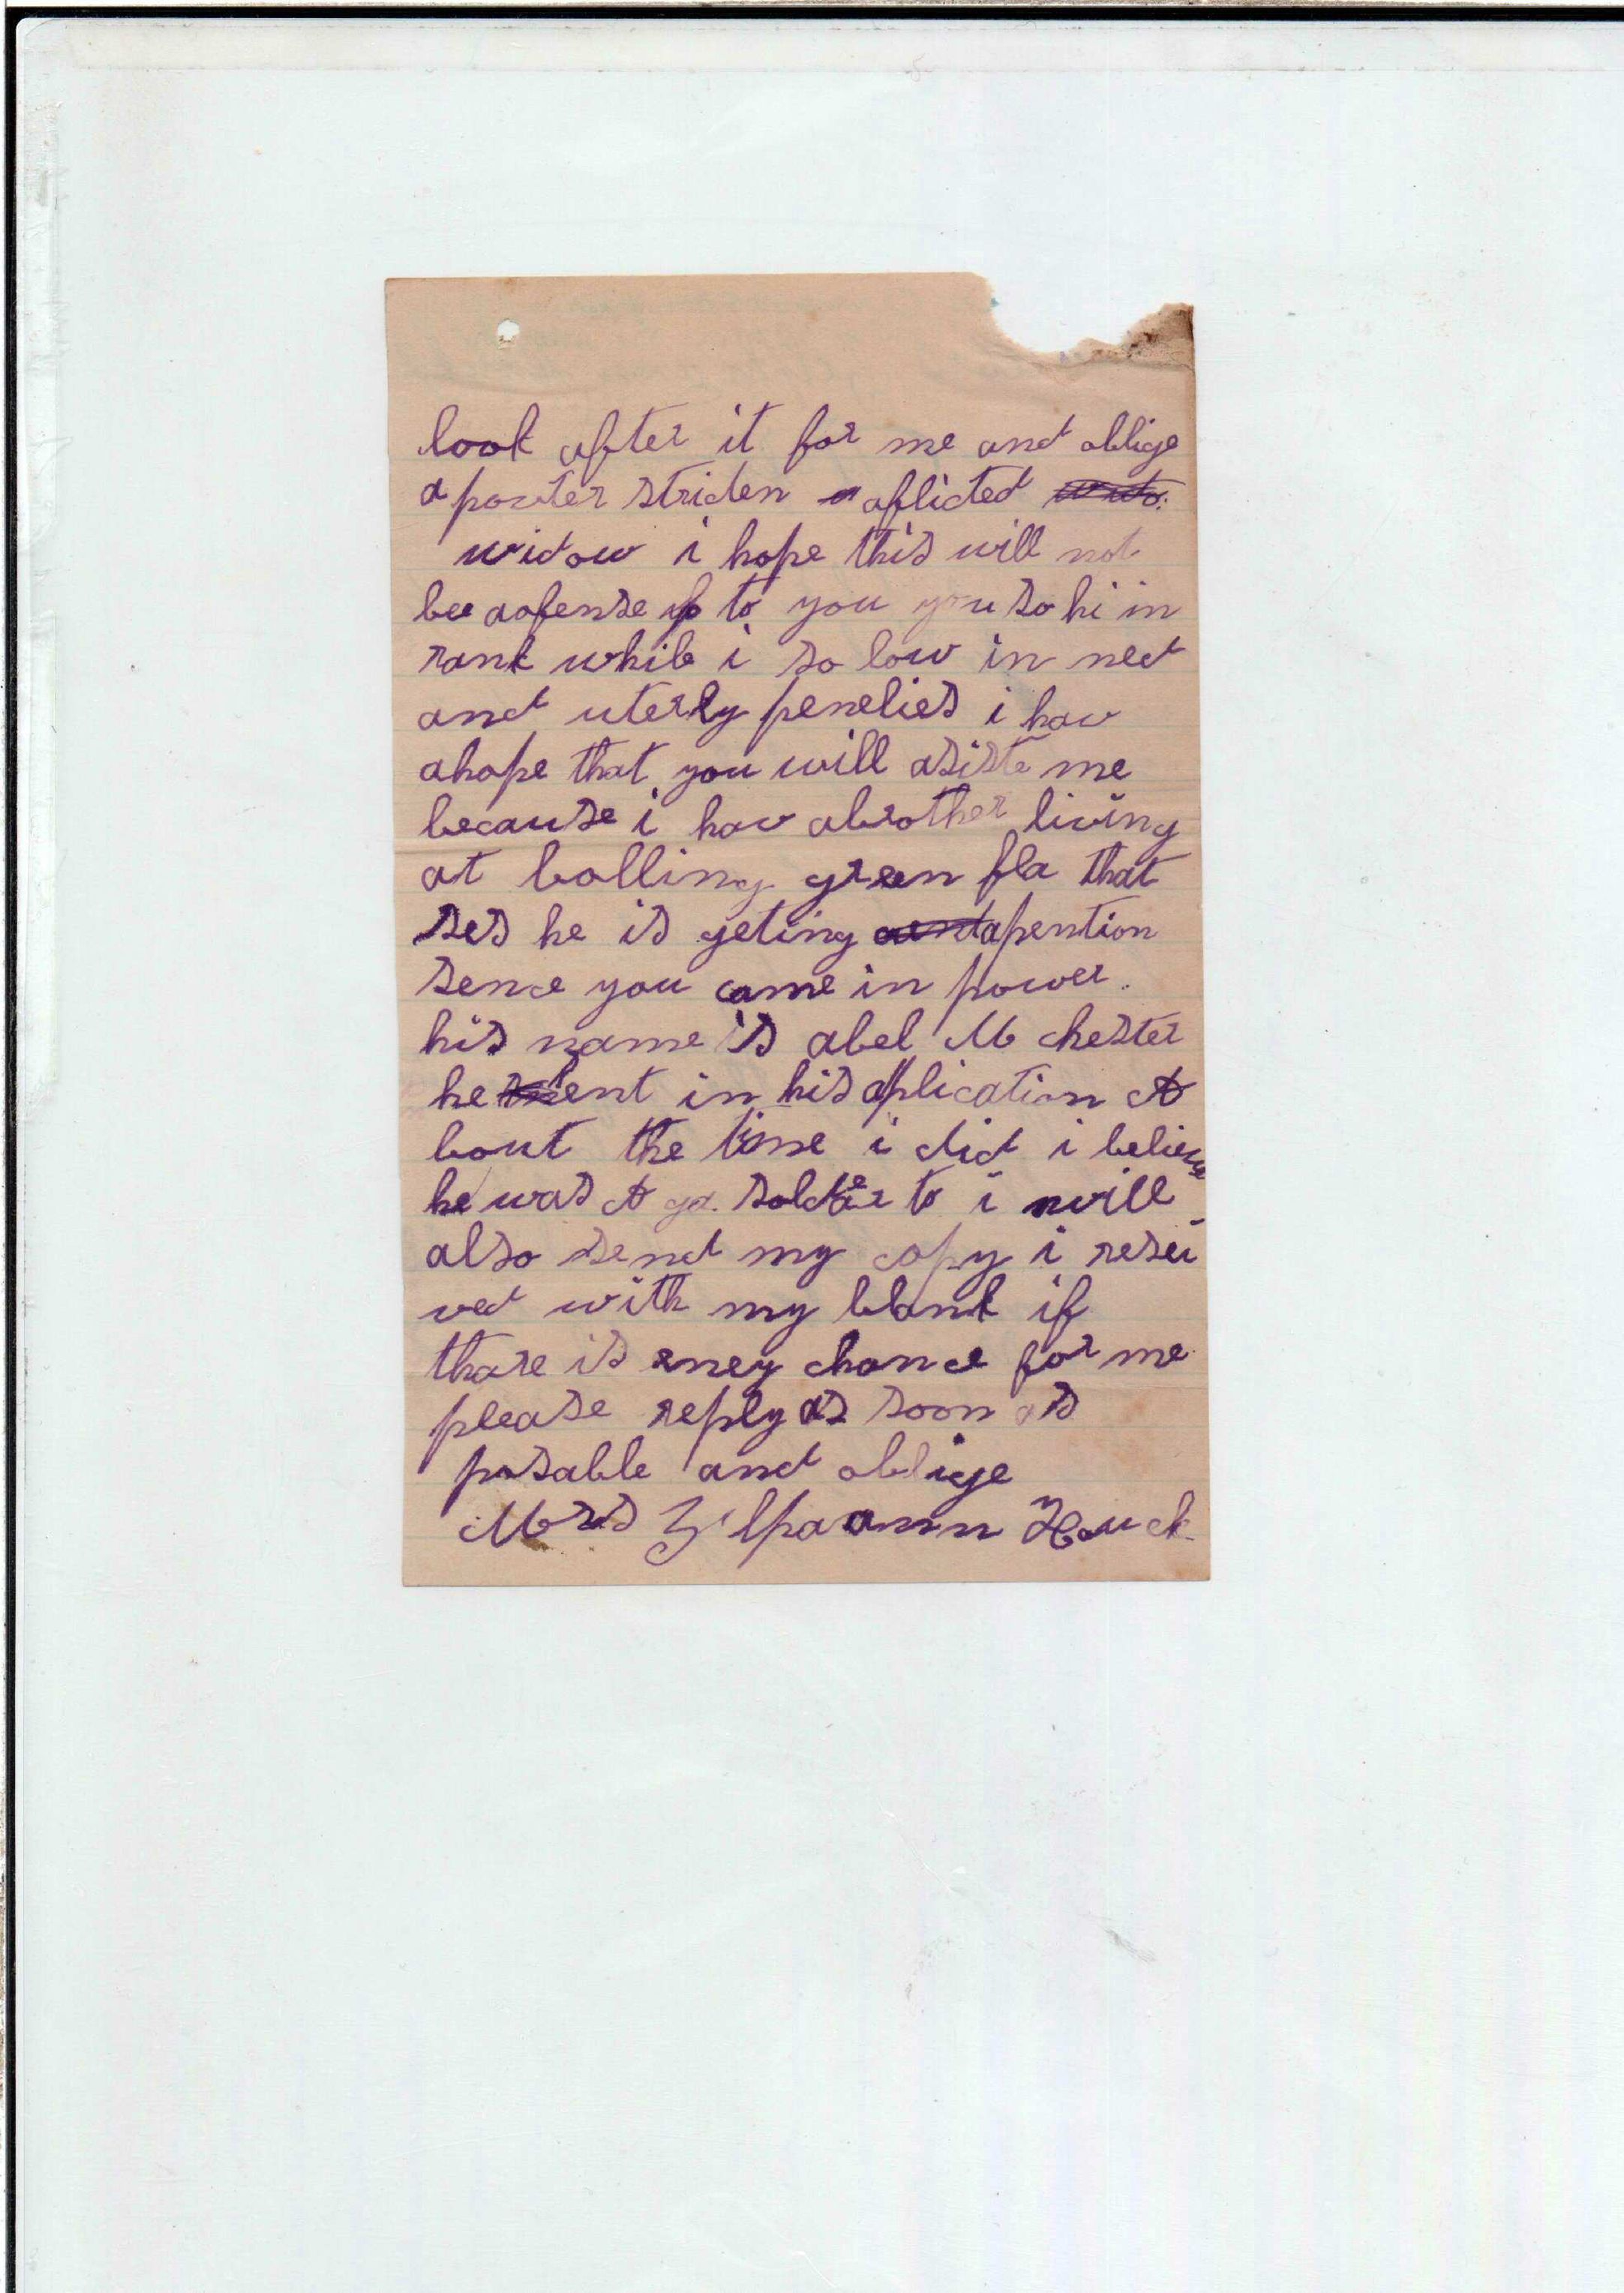 look after it for me and oblige
a poverter striden aflicted
widow i hope this will not
bee aofense to you you so hi in
rank while i so low in ned
and uterly penelies i hav
ahope that you will asiste me
because i hav abrother living
at bolling green fla that
ses he is geting apention
sence you came in power.
his name is abel M chester
he sent in his aplication A
bout the time i did i believe
he was A ga. soldier to i will
also send my copy i resei
ved with my blank if
thare is eney chance for me
please reply as soon as
posable and oblige
Mrs Zilpaann Houck